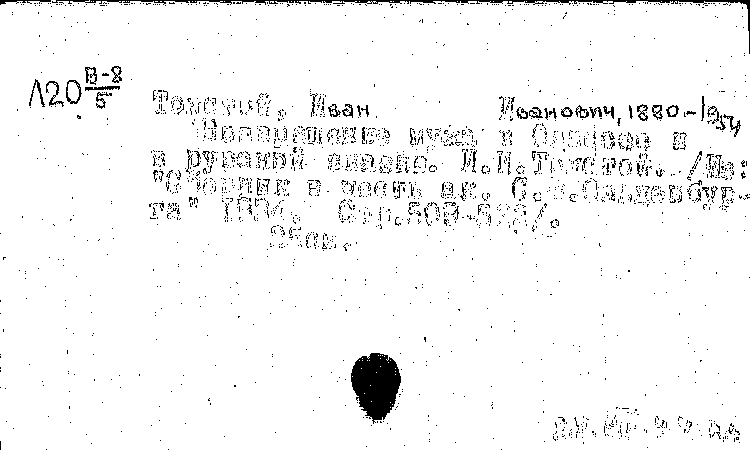 Л20 В-8/5
Толстой, Иван Иванович, 1880-1954
Возвращение мужа в Одиссее и
в русской сказке. И.И.Толстой. /Из:
"Сборник в честь ак. С. .Ольденбур-
га" 1934. Стр.509-523/.
25см.